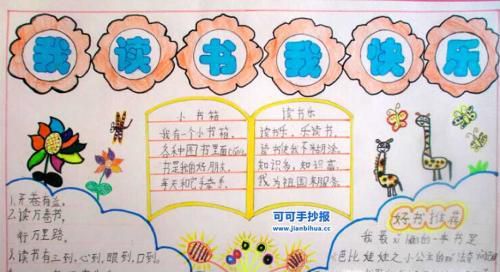 我读书我快乐
小书箱
我有一个小书箱,
各种图书里面
书是我的好朋友,
每天和它手牵手。
读书乐
读书乐,乐读书,
读书使我不糊涂。
知识多,知识富,
我为祖国来服务。
1、开卷有益。
2、读万卷书,
行万里路。
3、读书有三:心到,眼到,口到。
可可手抄报
www.jianbihua.cc
好书推荐
我最
的一本书是
《芭比娃娃之小公主的